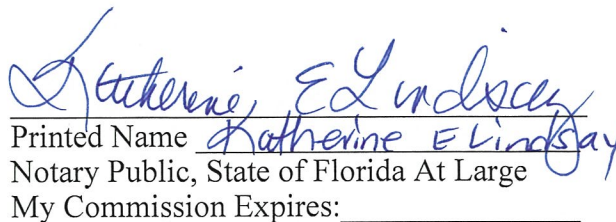 Katherine E Lindsay
Printed Name Katherine E Lindsay
Notary Public, State of Florida At Large
My Commission Expires: